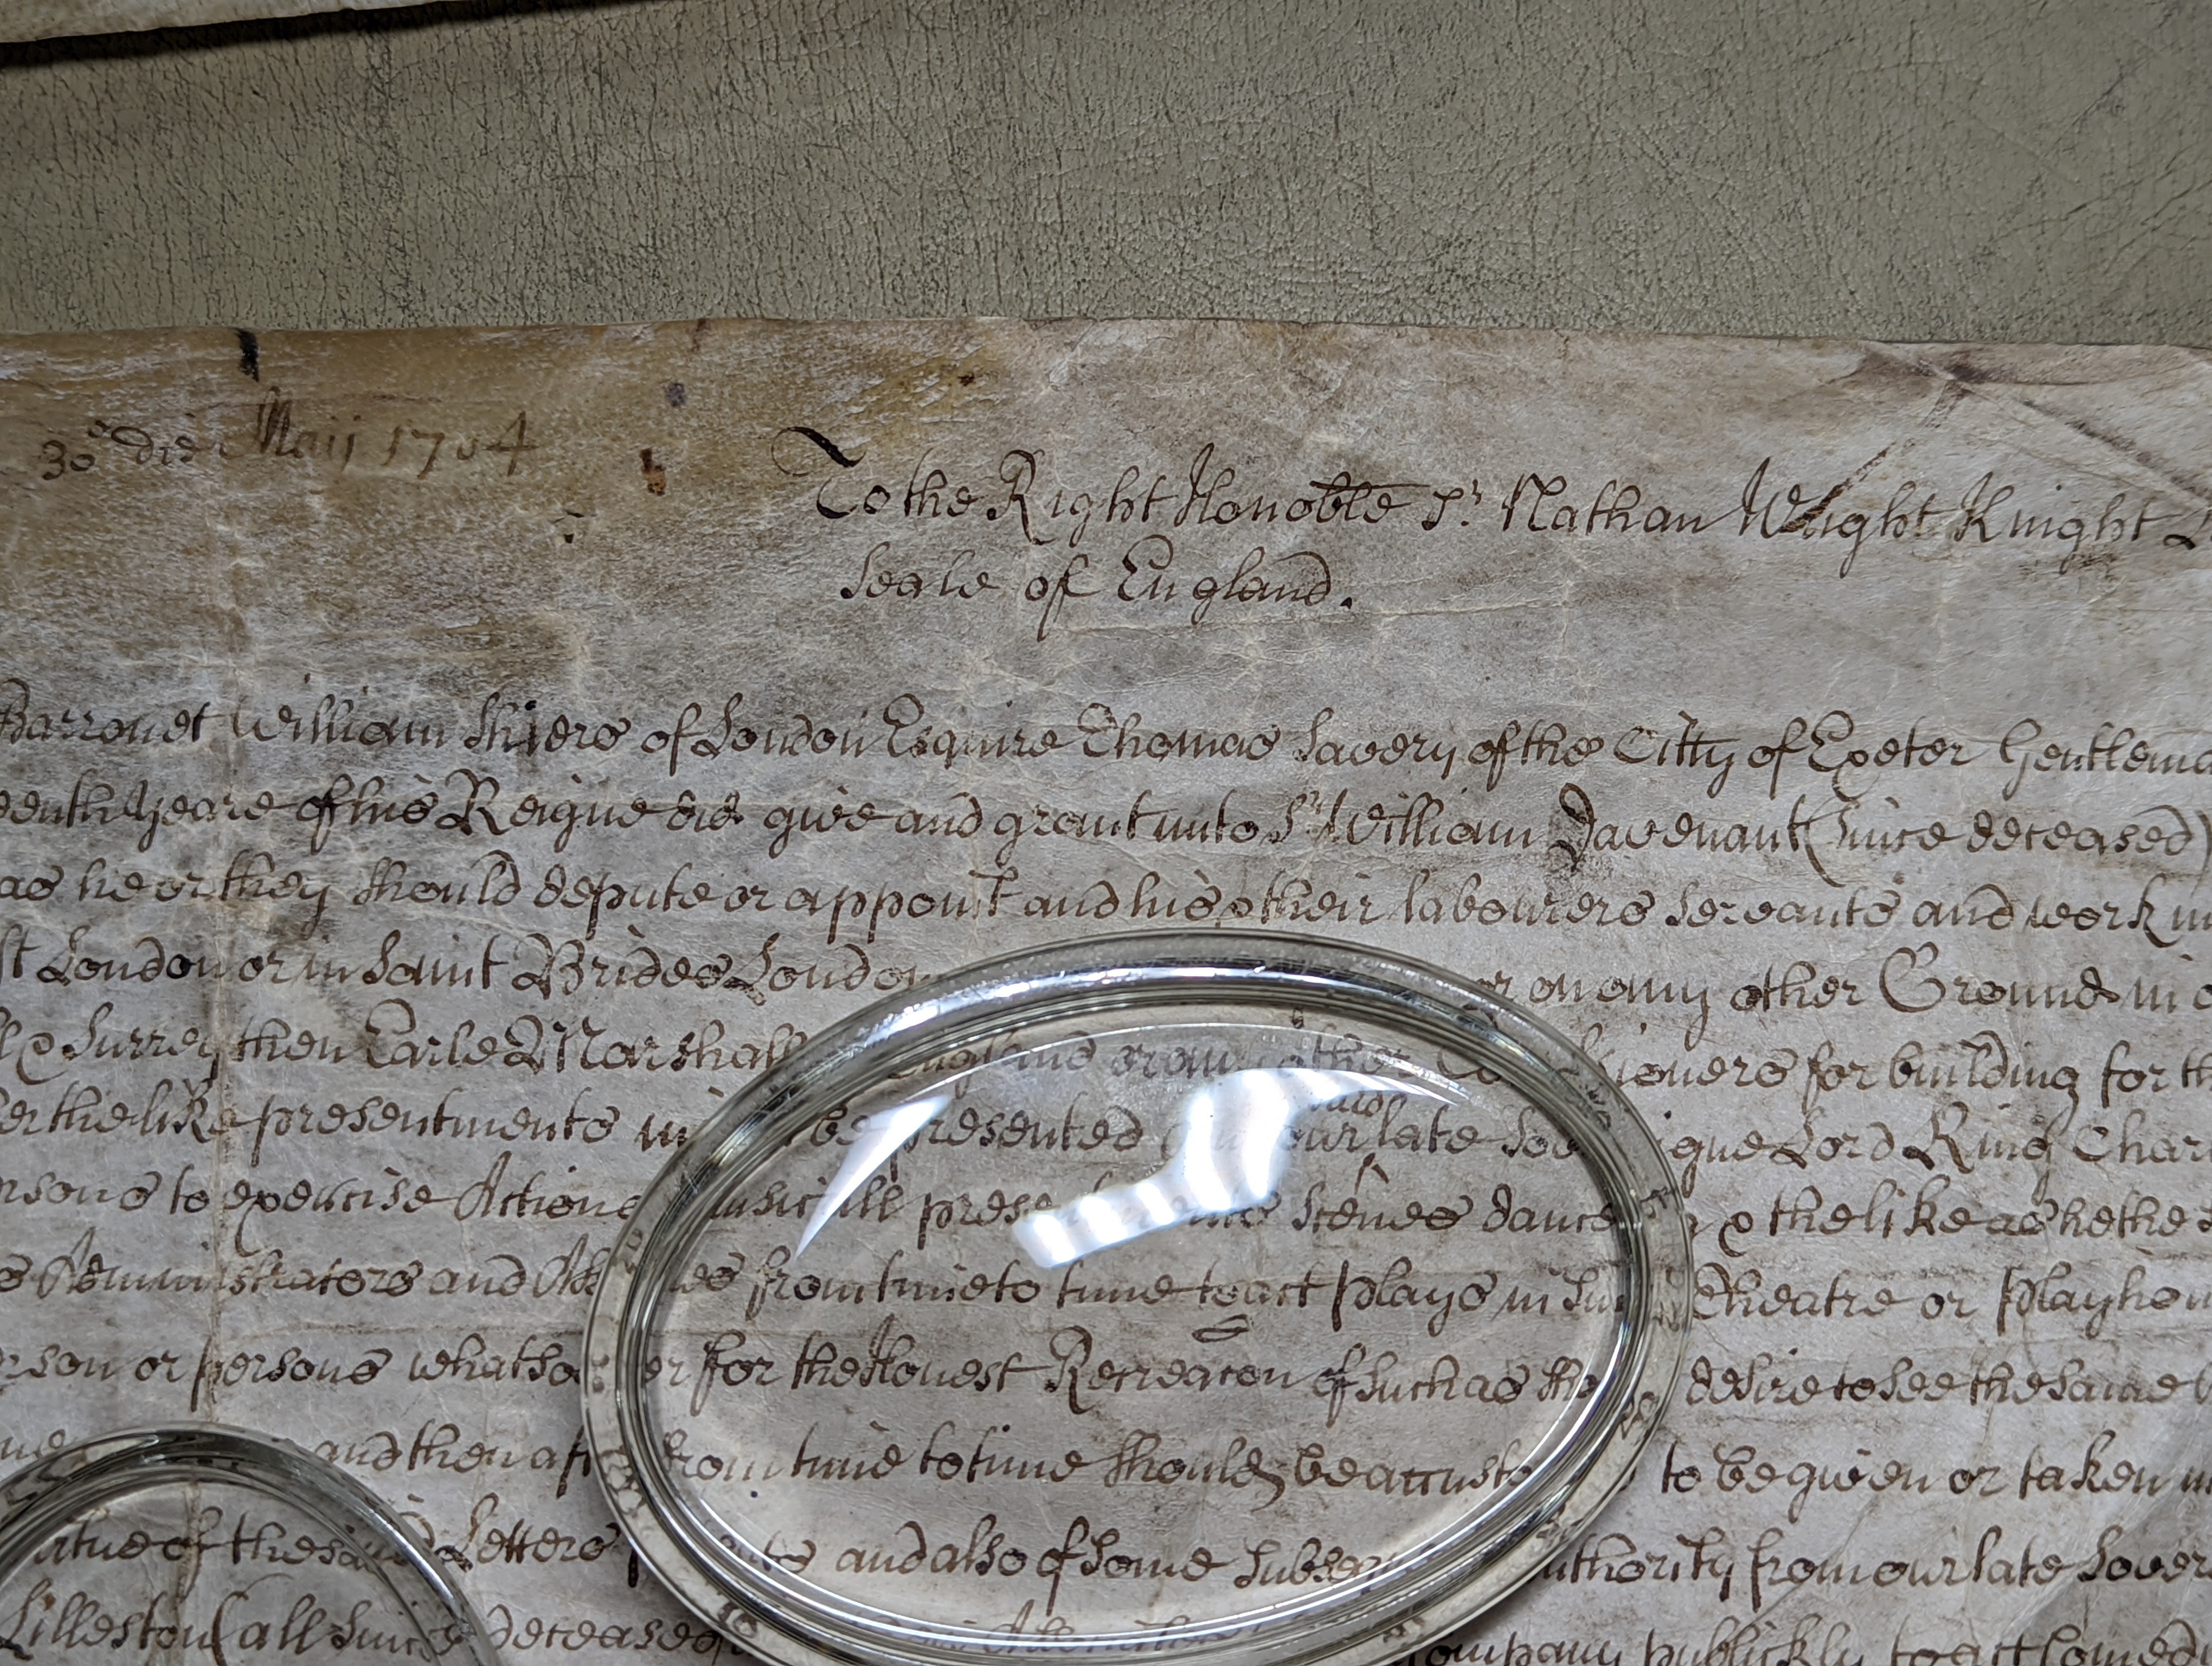 30º die Maij 1704
To the Right Honoble Sr. Nathan Wright Knight
Seale of England.
Barronet William Shiers of London Esquire Thomas Savery of the Citty of Exeter Gentlema
yeare of his Reigne did give and grant unto Sr. William Davenant (since deceased)
as he or they should depute or appoint and his & their labourers servants and workm
London or in Saint Brides London or on any other Ground in
& Surrey then Earle Marshall England or any other for building for th
the like presentments be presented our said late Lord King Char
to exercise Actions musicall scenes danceing & the like as he the
Administrators and from time to time to act plays in Theatre or playhou
or persons whatsoever for the Honest Recreacon of such as desire to see the same
and then after from time to time should be to be given or taken
of the said Letters and also of some from our late Sover
Lilleston (all since deceased publickly to act Comed